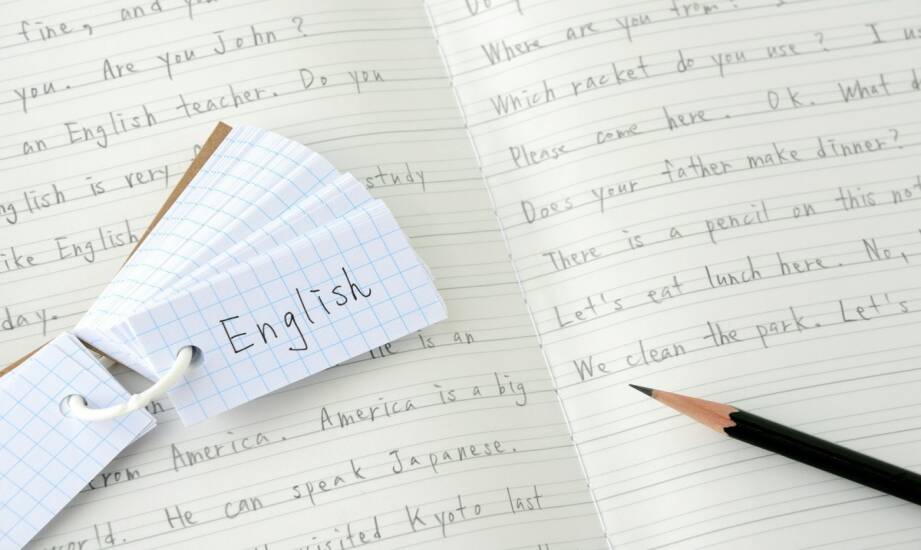 fine, and
you. Are you John?
an English teacher. Do you
English is very
study
like English
day.
He is an
from America. America is a big
world. He can speak Japanese.
visited Kyoto last
English
Do
Where are you from?
Which racket do you use? I
Please come here. OK. What
Does your father make dinner?
There is a pencil on this
Let's eat lunch here. No,
We clean the park. Let's